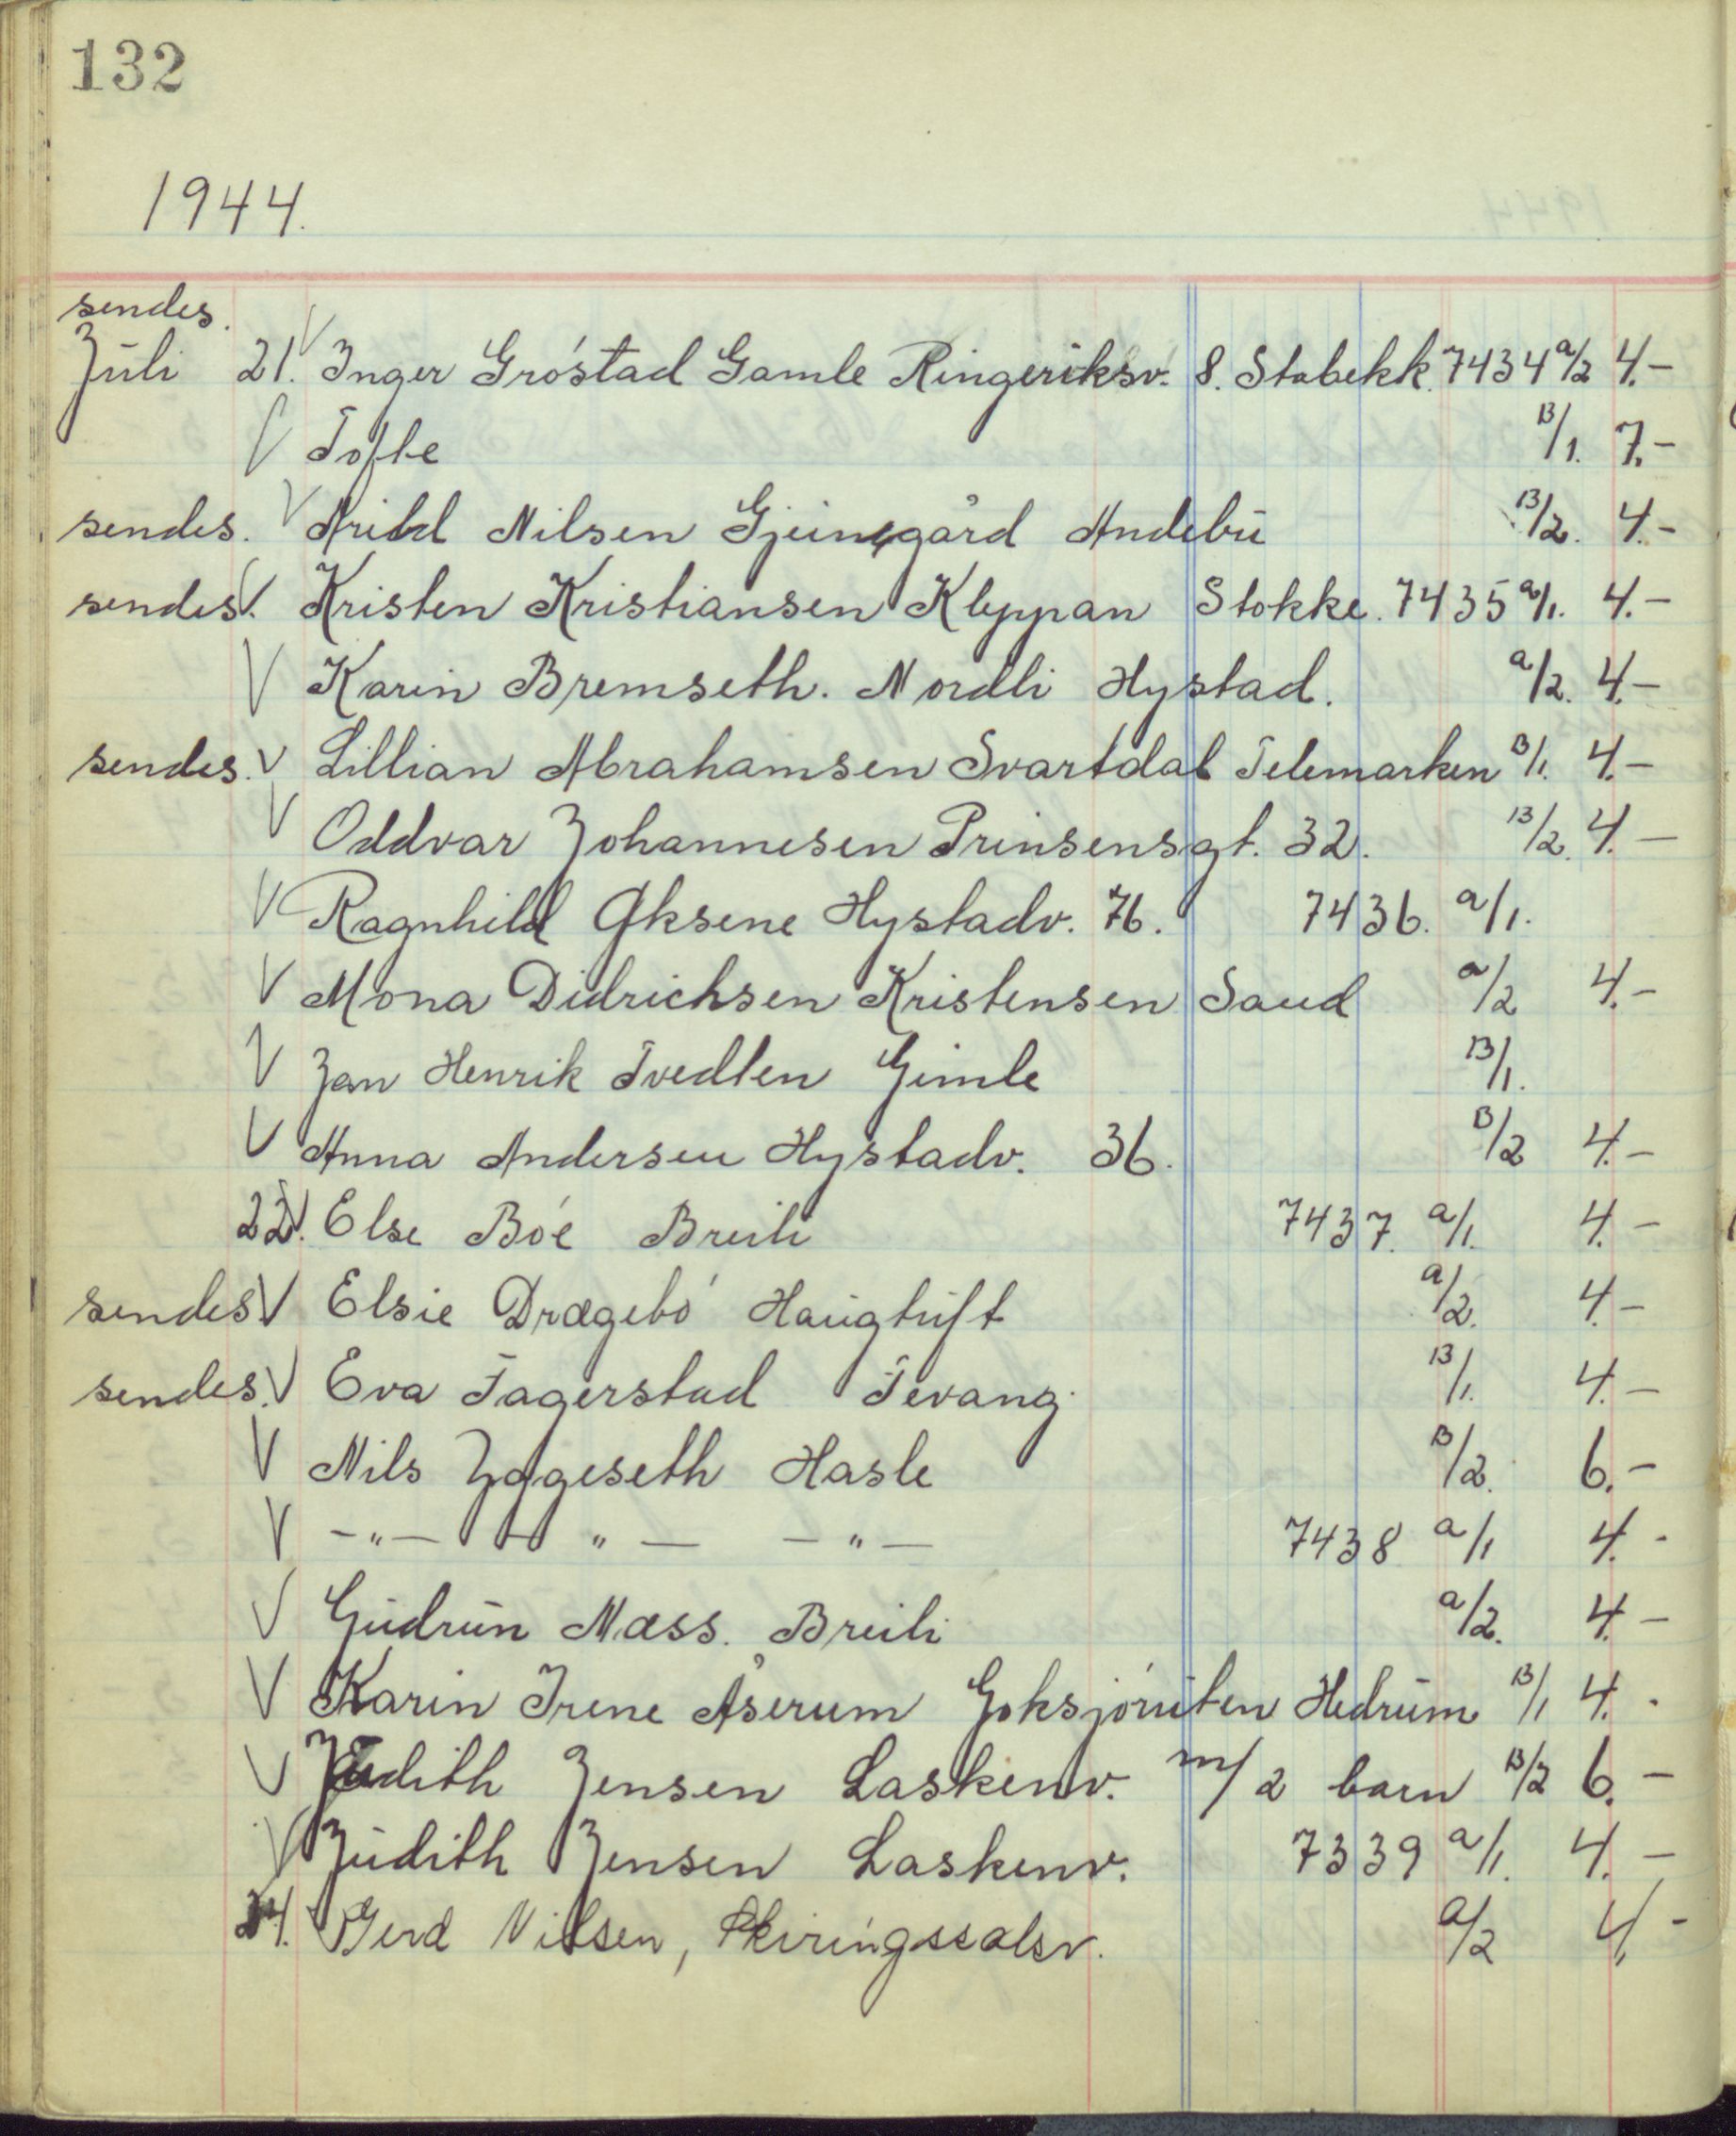 132
1944.
sendes.
Juli 21. V Inger Gróstad Gamle Ringeriksv. 8. Stabekk. 7434 a/2 4.-
V Tofte B/1. 7.-
sendes. V Arild Nilsen Gjeinegård Andebu B/2. 4.-
sendes. V Kristen Kristiansen Kleppan Stokke. 7435 a/1. 4.-
V Karin Bremseth. Nordli Hystad. a/2. 4.-
sendes. V Lillian Abrahamsen Svartdal Telemarken B/1. 4.-
V Oddvar Johannesen Prinsensgt. 32. B/2. 4.-
V Ragnhild Oksene Hystadv. 76. 7436. a/1.
V Mona Didrichsen Kristensen Saud a/2 4.-
V Jan Henrik Tvedten Gimle B/1.
V Anna Andersen Hystadv. 36. B/2 4.-
22. V Else Bóe Breili 7437. a/1. 4.-
sendes V Elsie Drægebó Haugtuft a/2. 4.-
sendes. V Eva Fagerstad Tevang. B/1. 4.-
V Nils Yggeseth Hasle B/2. 6.-
V -"- - " - - " - 7438 a/1 4.-
V Gudrun Næss. Breili a/2. 4.-
V Karin Irene Åserum Goksjóruten Hedrum B/1 4.-
V Judith Jensen Laskenv. m/2 barn B/2 6.-
V Judith Jensen Laskenv. 7339 a/1. 4.-
24. V Gerd Nilsen, Skiringssalsv. a/2 4,-